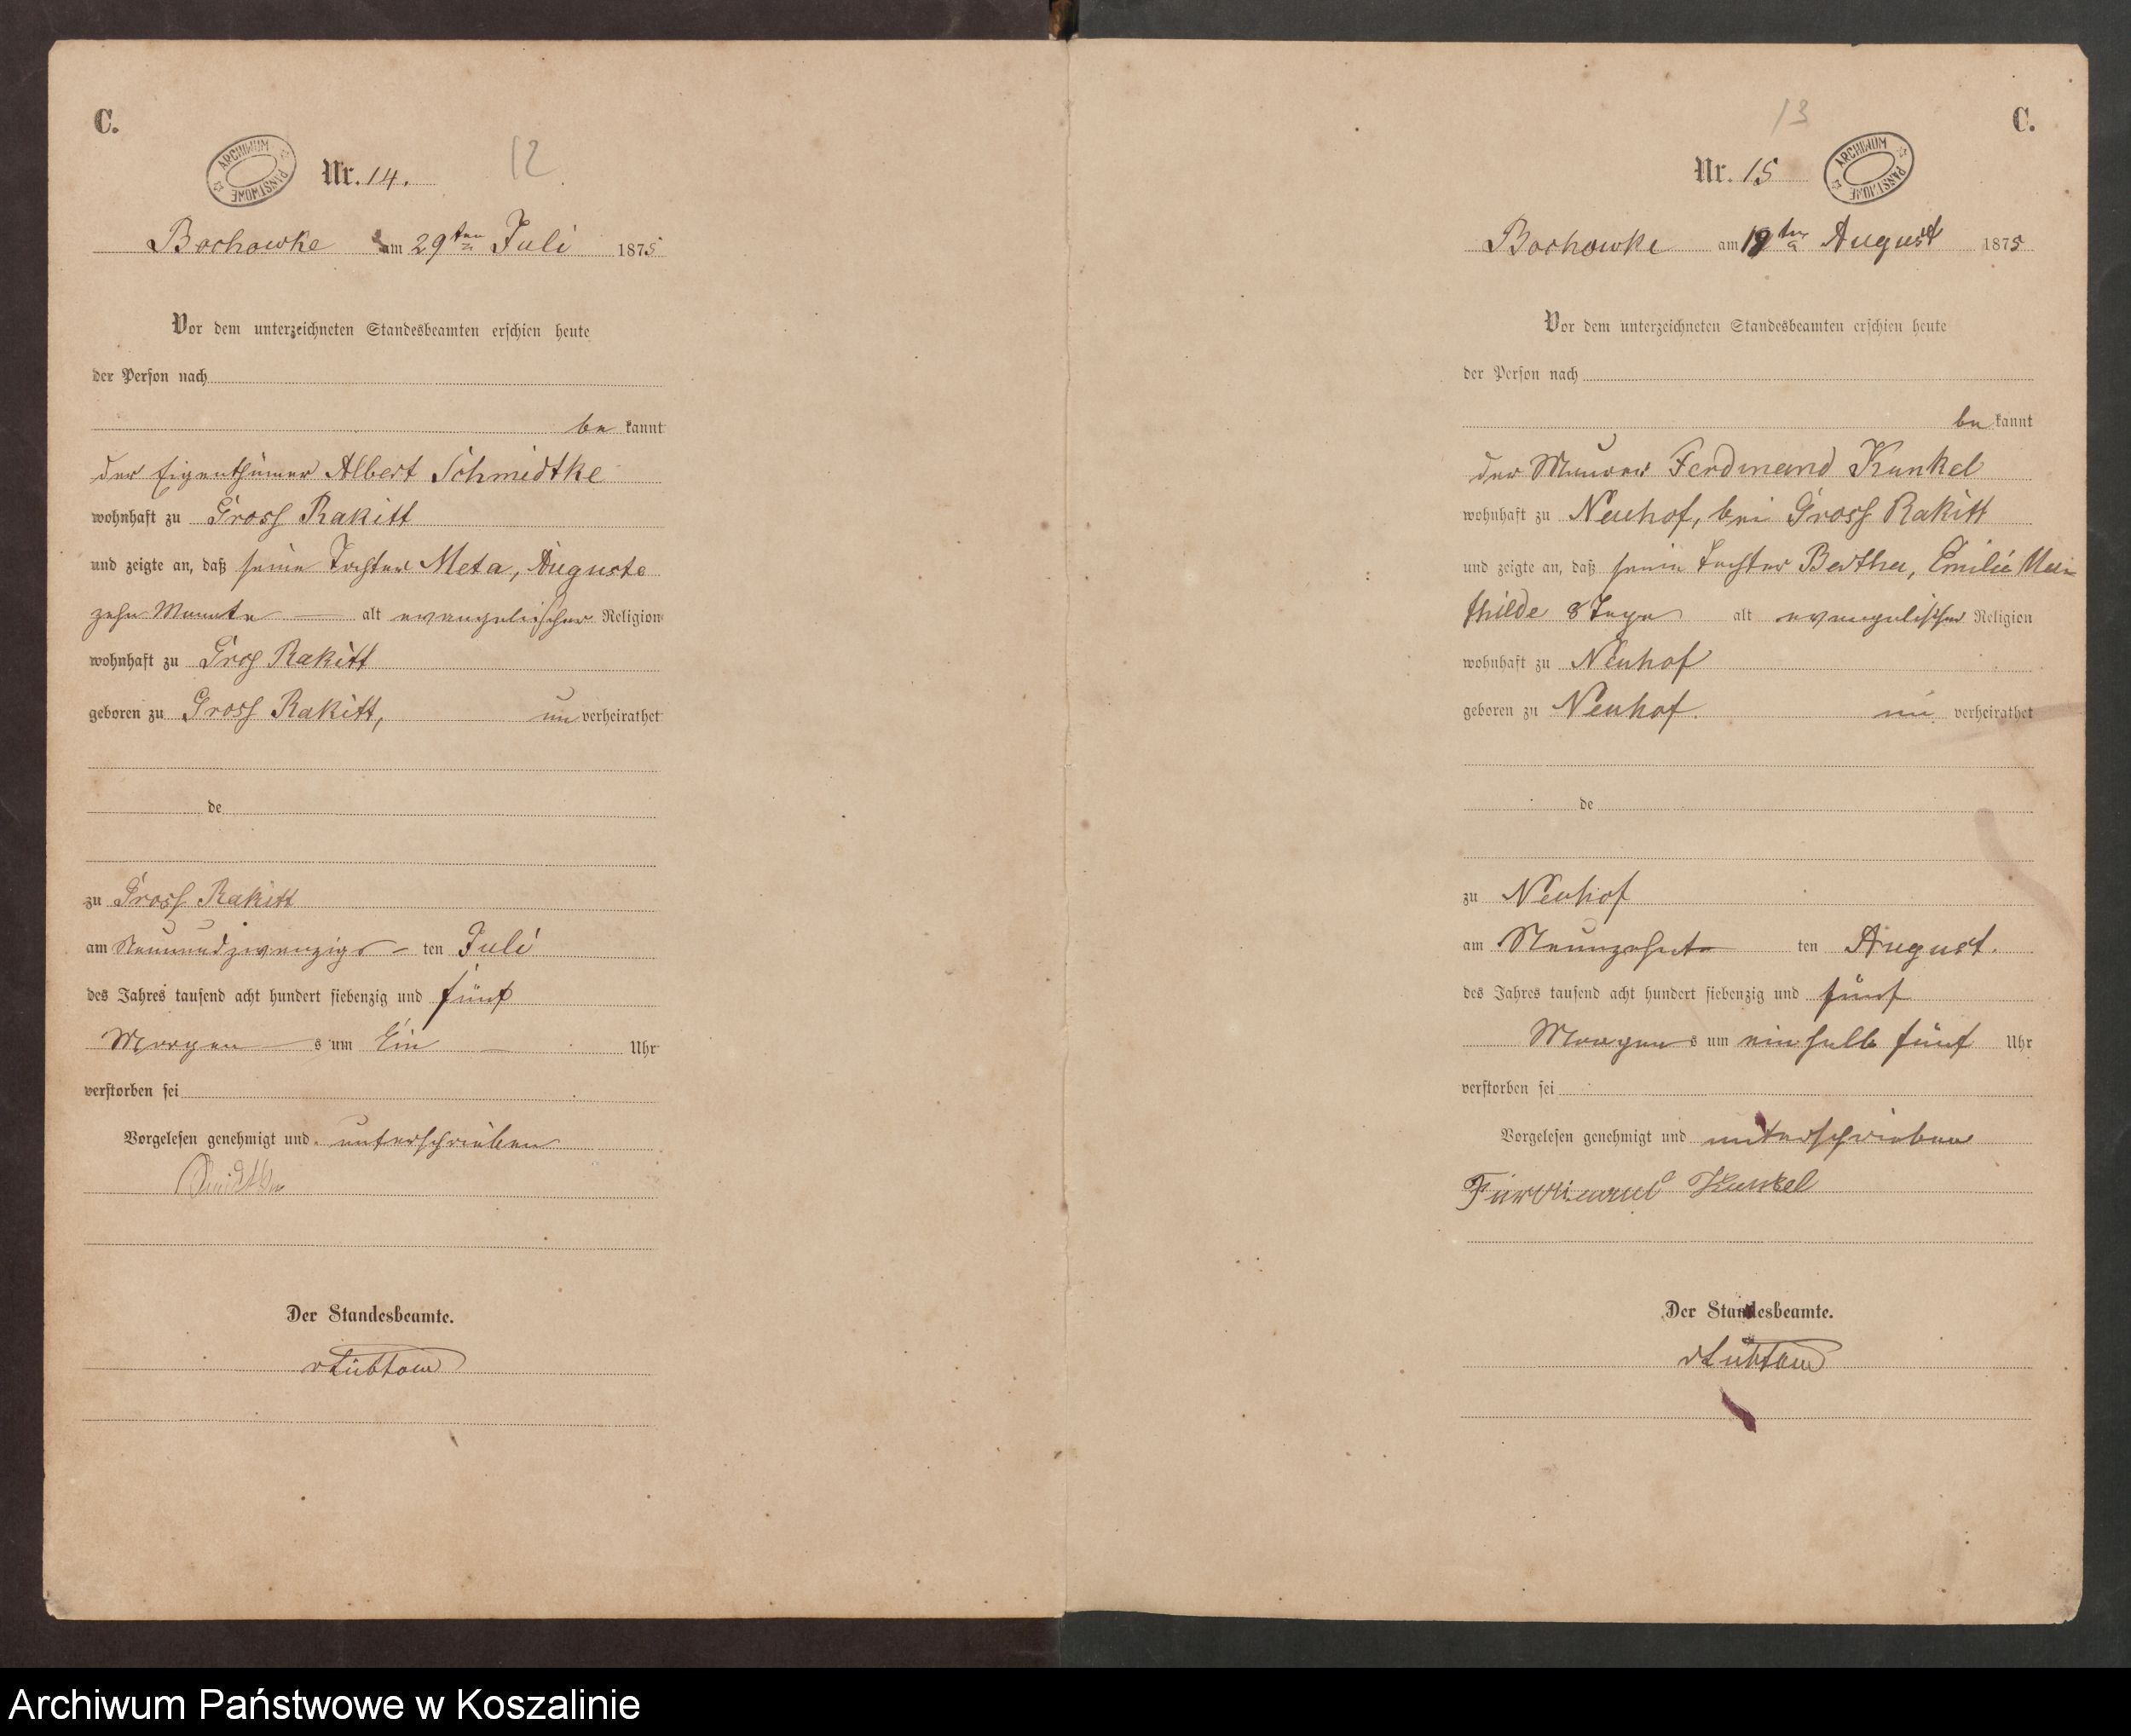 C.
ARCHIWUM PAŃSTWOWE
Nr. 14.
12
Bochowke am 29ten Juli 1875
Vor dem unterzeichneten Standesbeamten erschien heute
der Person nach
be kannt
der Eigenthümer Albert Schmidtke
wohnhaft zu Gross Rakitt
und zeigte an, daß seine Tochter Meta, Auguste
zehn Monate alt evangelischer Religion
wohnhaft zu Gros Rakitt
geboren zu Gross Rakitt, un verheirathet
de
zu Gross Rakitt
am Neunundzwanzigs- ten Juli
des Jahres tausend acht hundert siebenzig und fünf
Morgen s um Ein Uhr
verstorben sei
Vorgelesen genehmigt und unterschrieben
Der Standesbeamte.
vLübtow
C.
13
Nr. 15
ARCHIWUM PAŃSTWOWE
Bochowke am 19ten August 1875
Vor dem unterzeichneten Standesbeamten erschien heute
der Person nach
be kannt
der Maurer Ferdinand Kunkel
wohnhaft zu Neuhof, bei Gross Rakitt
und zeigte an, daß seine Tochter Bertha, Emilie Ma-
thilde 8 Tage alt evangelischer Religion
wohnhaft zu Neuhof
geboren zu Neuhof. un verheirathet
de
zu Neuhof
am Neunzehnte ten August.
des Jahres tausend acht hundert siebenzig und fünf
Morgen s um ein halb fünf Uhr
verstorben sei
Vorgelesen genehmigt und unterschrieben
Kunkel
Der Standesbeamte.
vLübtow
Archiwum Państwowe w Koszalinie